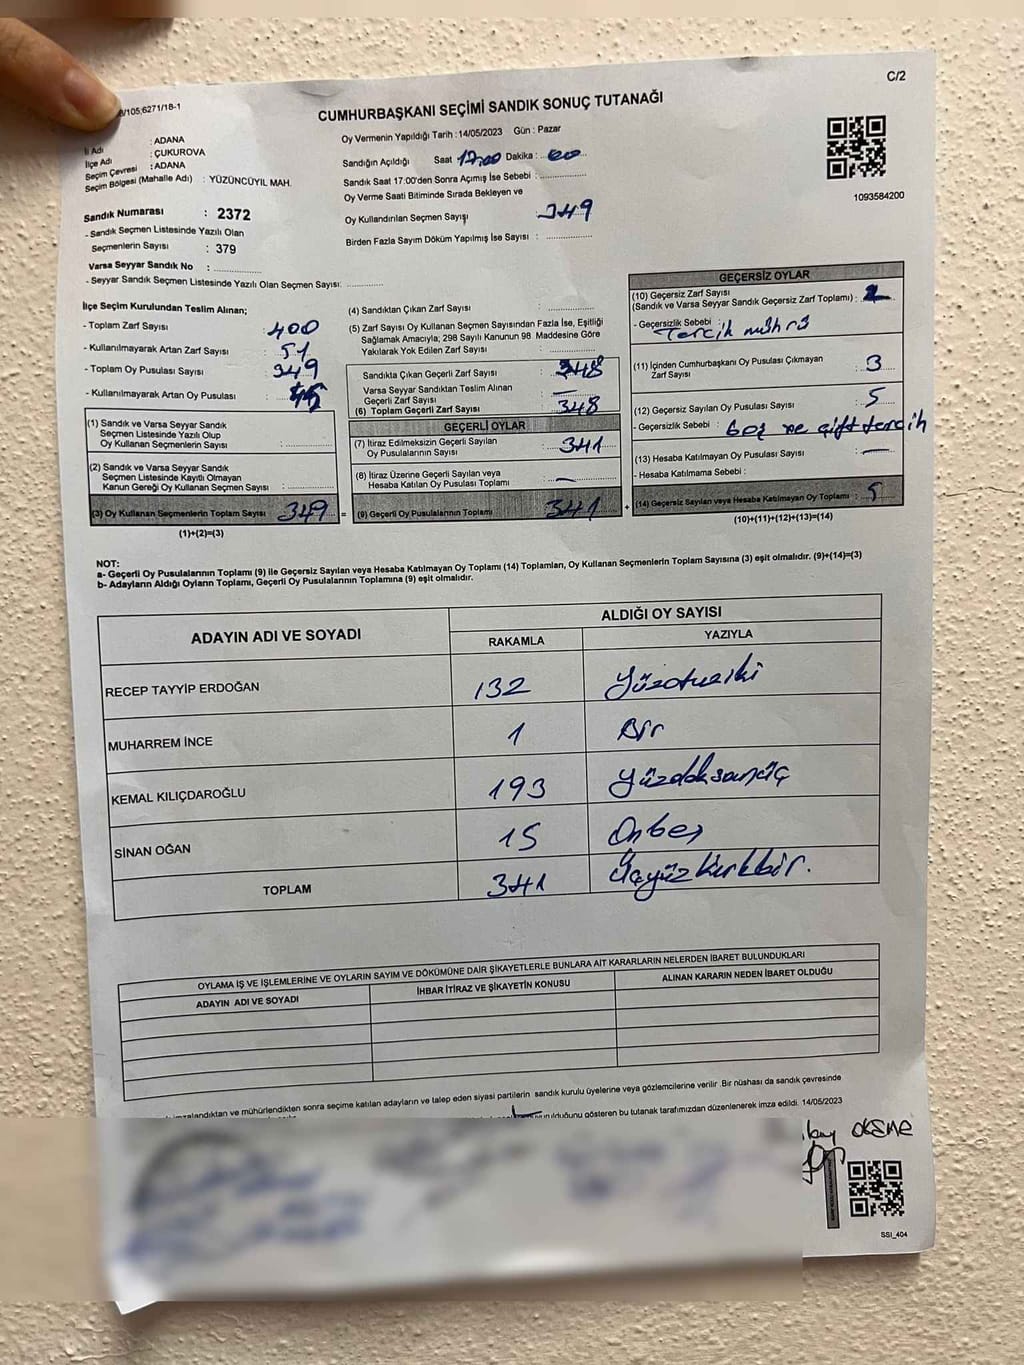 C/2
/105;6271/18-1
CUMHURBAŞKANI SEÇİMİ SANDIK SONUÇ TUTANAĞI
İl Adı : ADANA
İlçe Adı : ÇUKUROVA
Seçim Çevresi : ADANA
Seçim Bölgesi (Mahalle Adı) : YÜZÜNCÜYIL MAH.
Sandık Numarası : 2372
- Sandık Seçmen Listesinde Yazılı Olan
Seçmenlerin Sayısı : 379
Varsa Seyyar Sandık No : ..............
- Seyyar Sandık Seçmen Listesinde Yazılı Olan Seçmen Sayısı: ............
Oy Vermenin Yapıldığı Tarih : 14/05/2023 Gün : Pazar
Sandığın Açıldığı Saat 17:00 Dakika : 00
Sandık Saat 17:00'den Sonra Açımış İse Sebebi : ..............
Oy Verme Saati Bitiminde Sırada Bekleyen ve
Oy Kullandırılan Seçmen Sayısı : 349
Birden Fazla Sayım Döküm Yapılmış İse Sayısı : ..............
1093584200
İlçe Seçim Kurulundan Teslim Alınan;
- Toplam Zarf Sayısı : 400
- Kullanılmayarak Artan Zarf Sayısı : 51
- Toplam Oy Pusulası Sayısı : 349
- Kullanılmayarak Artan Oy Pusulası :
(1) Sandık ve Varsa Seyyar Sandık
Seçmen Listesinde Yazılı Olup
Oy Kullanan Seçmenlerin Sayısı : ..............
(2) Sandık ve Varsa Seyyar Sandık
Seçmen Listesinde Kayıtlı Olmayan
Kanun Gereği Oy Kullanan Seçmen Sayısı : ..............
(3) Oy Kullanan Seçmenlerin Toplam Sayısı : 349 =
(1)+(2)=(3)
(4) Sandıktan Çıkan Zarf Sayısı : ..............
(5) Zarf Sayısı Oy Kullanan Seçmen Sayısından Fazla İse, Eşitliği
Sağlamak Amacıyla; 298 Sayılı Kanunun 98. Maddesine Göre
Yakılarak Yok Edilen Zarf Sayısı : ..............
Sandıkta Çıkan Geçerli Zarf Sayısı : 348
Varsa Seyyar Sandıktan Teslim Alınan
Geçerli Zarf Sayısı : —
(6) Toplam Geçerli Zarf Sayısı : 348
GEÇERLİ OYLAR
(7) İtiraz Edilmeksizin Geçerli Sayılan
Oy Pusulalarının Sayısı : 341
(8) İtiraz Üzerine Geçerli Sayılan veya
Hesaba Katılan Oy Pusulası Toplamı : —
(9) Geçerli Oy Pusulalarının Toplamı : 341 +
GEÇERSİZ OYLAR
(10) Geçersiz Zarf Sayısı
(Sandık ve Varsa Seyyar Sandık Geçersiz Zarf Toplamı) :
- Geçersizlik Sebebi : Tercih mührü
(11) İçinden Cumhurbaşkanı Oy Pusulası Çıkmayan
Zarf Sayısı : 3
(12) Geçersiz Sayılan Oy Pusulası Sayısı : 5
- Geçersizlik Sebebi : boş ve çift tercih
(13) Hesaba Katılmayan Oy Pusulası Sayısı : —
- Hesaba Katılmama Sebebi :
(14) Geçersiz Sayılan veya Hesaba Katılmayan Oy Toplamı : 5
(10)+(11)+(12)+(13)=(14)
NOT:
a- Geçerli Oy Pusulalarının Toplamı (9) ile Geçersiz Sayılan veya Hesaba Katılmayan Oy Toplamı (14) Toplamları, Oy Kullanan Seçmenlerin Toplam Sayısına (3) eşit olmalıdır. (9)+(14)=(3)
b- Adayların Aldığı Oyların Toplamı, Geçerli Oy Pusulalarının Toplamına (9) eşit olmalıdır.
ADAYIN ADI VE SOYADI ALDIĞI OY SAYISI
RAKAMLA YAZIYLA
RECEP TAYYİP ERDOĞAN 132 Yüzotuziki
MUHARREM İNCE 1 Bir
KEMAL KILIÇDAROĞLU 193 Yüzdoksanüç
SİNAN OĞAN 15 Onbeş
TOPLAM 341 Üçyüzkırkbir.
OYLAMA İŞ VE İŞLEMLERİNE VE OYLARIN SAYIM VE DÖKÜMÜNE DAİR ŞİKAYETLERLE BUNLARA AİT KARARLARIN NELERDEN İBARET BULUNDUKLARI
ADAYIN ADI VE SOYADI İHBAR İTİRAZ VE ŞİKAYETİN KONUSU ALINAN KARARIN NEDEN İBARET OLDUĞU
imzalandıktan ve mühürlendikten sonra seçime katılan adayların ve talep eden siyasi partilerin sandık kurulu üyelerine veya gözlemcilerine verilir .Bir nüshası da sandık çevresinde
gösteren bu tutanak tarafımızdan düzenlenerek imza edildi. 14/05/2023
SSI_404